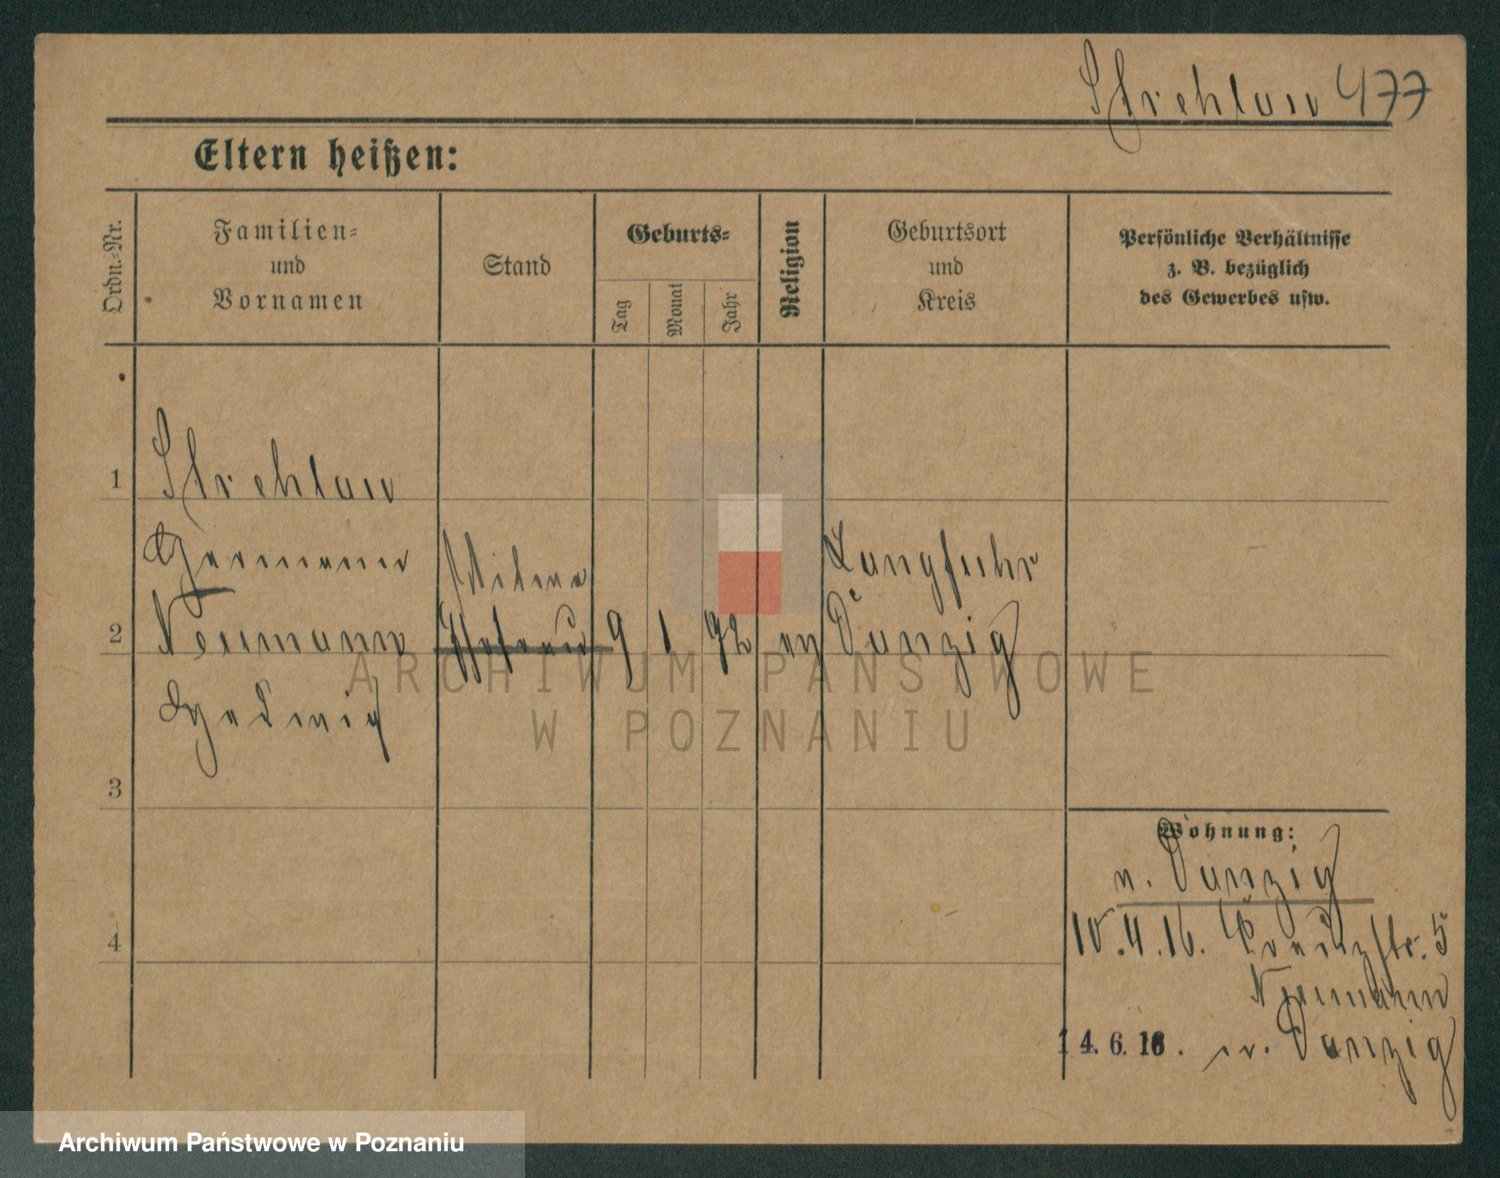 Strehlau 477
Eltern heißen:
Ordn.-Nr.
Familien-
und
Vornamen
Stand
Geburts-
Tag
Monat
Jahr
Religion
Geburtsort
und
Kreis
Persönliche Verhältnisse
z. B. bezüglich
des Gewerbes usw.
1
Strehlau
Hermann
Witwe
Langfuhr
2
Neumann
9 1 92 ev Danzig
Hedwig
3
4
Wohnung:
n. Danzig
10.4.16. Kreuzstr. 5
Neumann
14.6.16. n. Danzig
ARCHIWUM PAŃSTWOWE
W POZNANIU
Archiwum Państwowe w Poznaniu